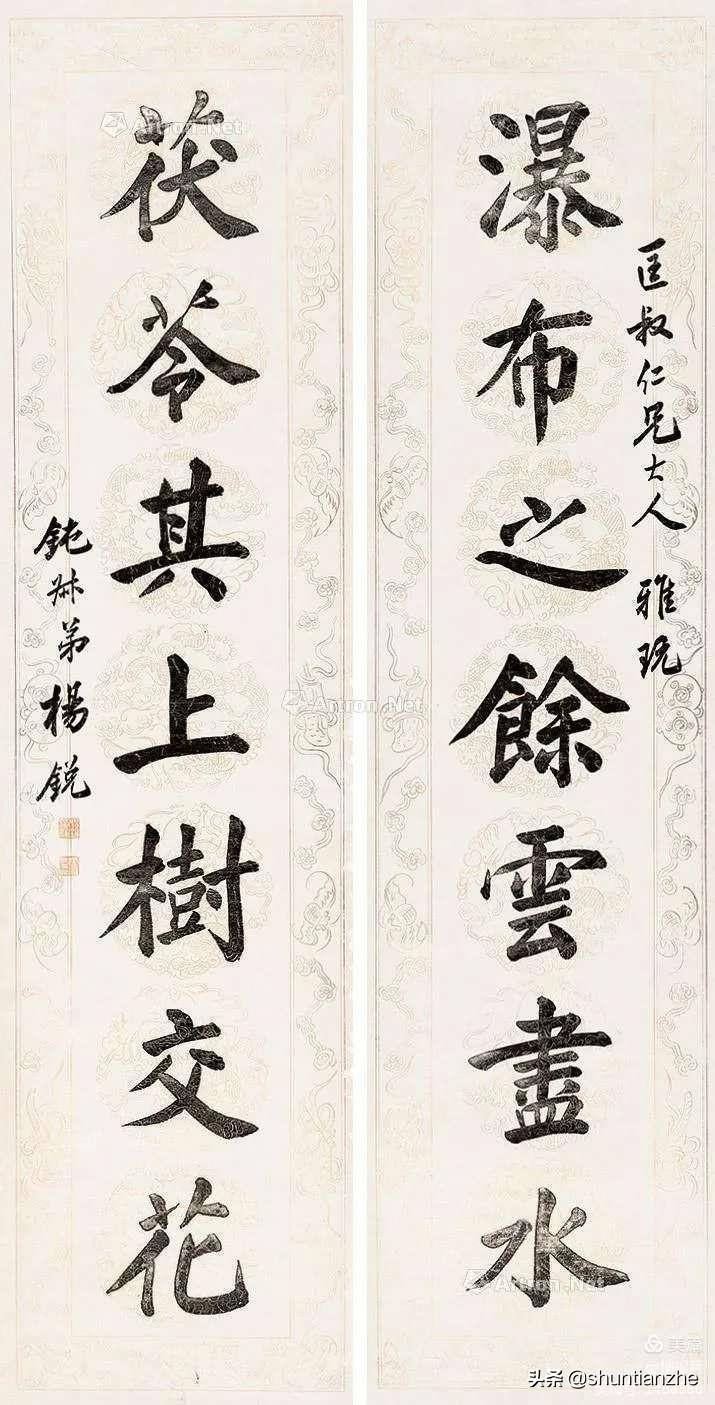 匡叔仁兄大人 雅玩
瀑布之餘雲盡水
茯苓其上樹交花
鈍叔弟楊銳
Artron.Net
Artron.Net
Artron.Net
美篇
头条 @shuntianzhe